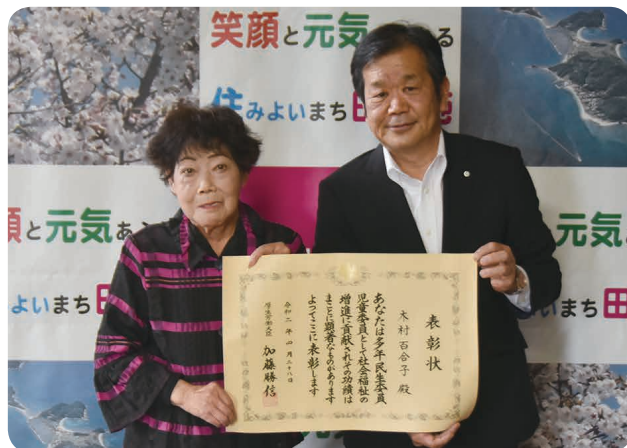 笑顔と元気
る
住みよいまち田
顔と元気あ
元気
よいまち田
まち
表彰状
木村百合子殿
あなたは多年民生委員
児童委員として社会福祉の
増進に貢献されその功績は
まことに顕著なものがあります
よってここに表彰します
令和二年四月二十八日
厚生労働大臣
加藤勝信